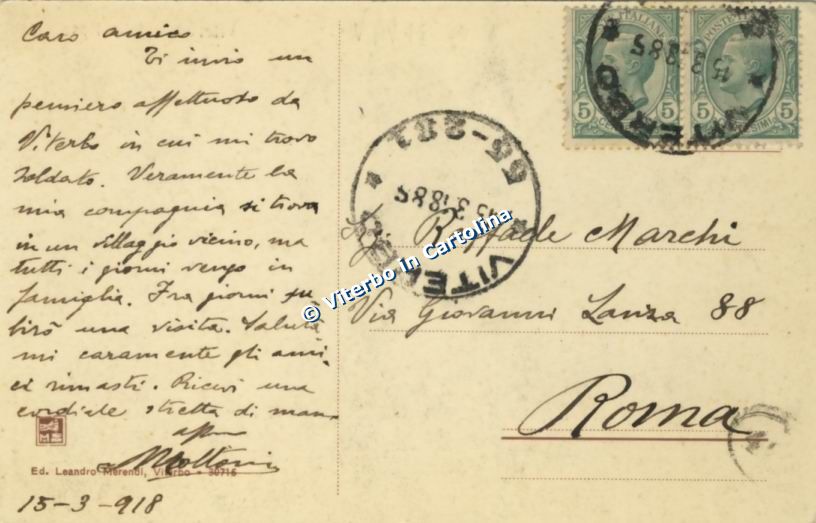 Caro amico
Ti invio un
pensiero affettuoso da
Viterbo in cui mi trovo
soldato. Veramente la
mia compagnia si trova
in un villaggio vicino, ma
tutti i giorni vengo in
famiglia. Fra giorni su
birò una visita. Saluta
mi caramente gli ami
ci rimasti. Ricevi una
cordiale stretta di mano
aff
15-3-918
Ed. Leandro Merendi, Viterbo - 30715
POSTE ITALIANE
5 5 5 5
VITERBO
15 3 18 8S
VITERBO
15 3 18 8S
Raffaele Marchi
Via Giovanni Lanza 88
Roma
© Viterbo In Cartolina